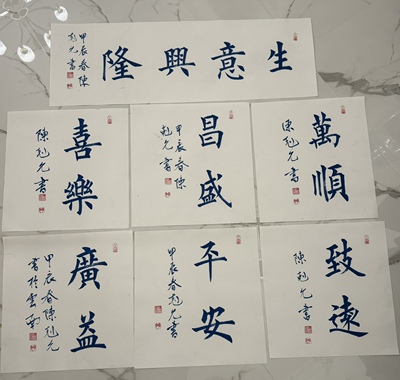 生意興隆
甲辰春陳
允書
萬順
陳允書
昌盛
甲辰春陳
允書
喜樂
陳允書
致遠
陳允書
平安
甲辰春允書
廣益
甲辰春陳允
書於雲南